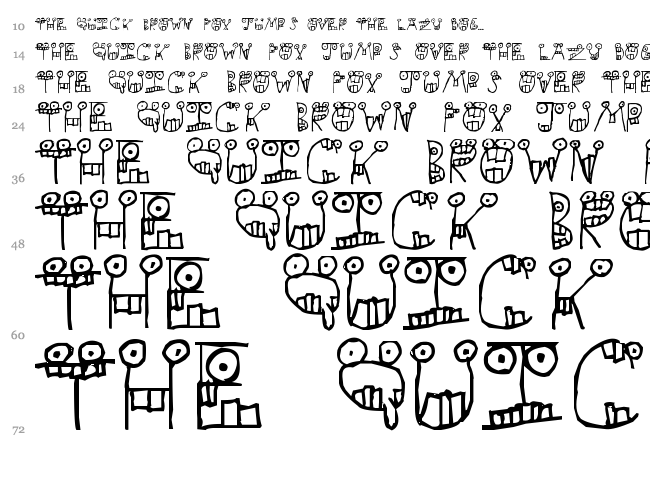 10 THE QUICK BROWN FOX JUMPS OVER THE LAZY DOG...
14 THE QUICK BROWN FOX JUMPS OVER THE LAZY DOG
18 THE QUICK BROWN FOX JUMPS OVER THE
24 THE QUICK BROWN FOX JUMP
36 THE QUICK BROWN
48 THE QUICK BRO
60 THE QUICK
72 THE QUIC